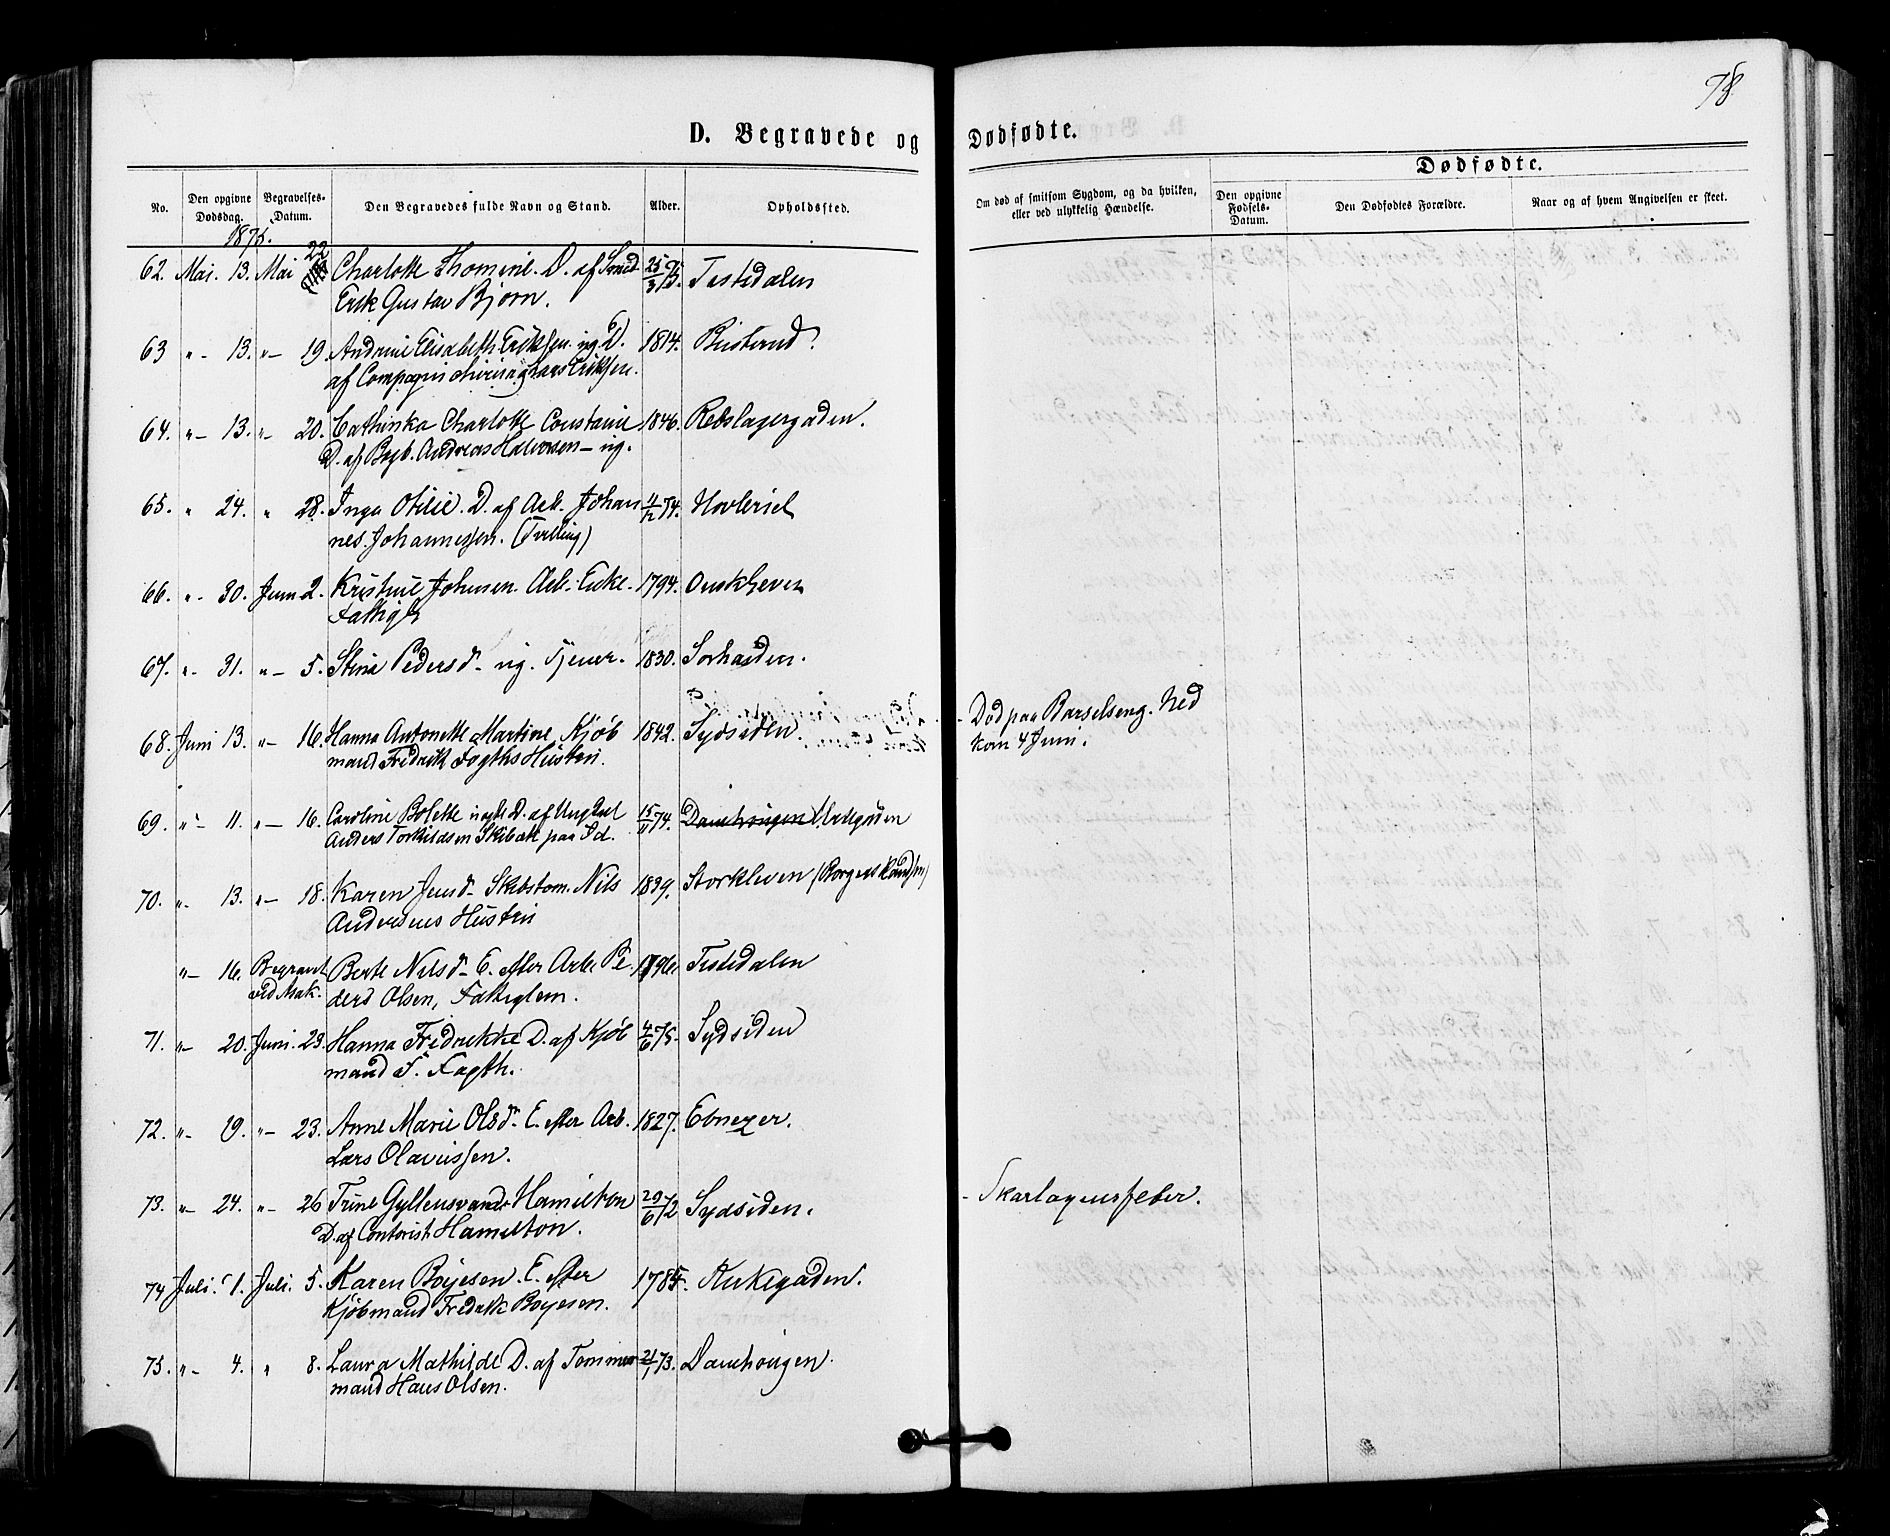 78
D. Begravede og Dødfødte.
Dødfødte.
No.
Den opgivne Dødsdag.
Begravelses-Datum.
Den Begravedes fulde Navn og Stand.
Alder.
Opholdssted.
Om død af smitsom Sygdom, og da hvilken, eller ved ulykkelig Hændelse.
Den opgivne Fødsels-Datum.
Den Dødfødtes Forældre.
Naar og af hvem Angivelsen er skeet.
1875.
62. Mai. 13. Mai 22 Charlotte Thomine. D. af Smed 25/3 75. Tistedalen
Erik Gustav Bjørn.
63 " - 13. " - 19. Andrine Elisabeth Eriksen. ug. D. 1814. Busterud.
af Compagni Hans Eriksen.
64. " - 13. " - 20. Cathinka Charlotte Constanse 1846. Rebslagergaden.
D. af Bogb. Andreas Halvorsen - ug.
65. " 24. " 28. Inga Otilie. D. af Arb. Johan 11/12 74. Hovleriet
nes. Johannessen. (Tvilling)
66. " - 30. Juni 2. Kristine Johnsen. Arb. Enke. 1794. Ouskleven
Fattigl.
67. " - 31. " - 5. Stina Pedersd. ug. Tjener. 1830. Sorhauden.
68. Juni 13. " - 16. Hanna Antonette Martine, Kjøb 1842. Sydsiden. - Død paa Barselseng. Ned
mand Fredrik Fagths Hustru. kom 4 Juni.
69. " - 11. " - 16. Caroline Bolette D. af Ungkarl 15/11 74. Damhougen
Anders Torkildsen Skibæk paa Id.
70. " - 13. " - 18. Karen Jensd. Skibstøm. Nils 1839. Storkleven
Andersens Hustru
" - 16. Begravet Berte Nilsd. E. efter Arb. Pe 1796. Tistedalen
ved Asak. ders Olsen, Fattiglem.
71. " - 20. Juni. 23. Hanna Fredrikke D. af Kjøb 4/6 75. Sydsiden
mand F. Fagth.
72. " - 19. " - 23. Anne Marie Olsdn. E. efter Arb. 1827. Ebnezer.
Lars Olaussen.
73. " - 24. " - 26 Trine Gyllensvands Hamilton 29/6 72 Sydsiden. - Skarlagensfeber.
D. af Contorist Hamilton.
74 Juli. 1. Juli. 5. Karen Boyesen. E. efter 1785. Kirkegaden.
Kjøbmand Fredrik Boyesen.
75. " - 4. " 8. Laura Mathilde D. af Tømmer 21/1 73. Damhougen.
mand Hans Olsen.